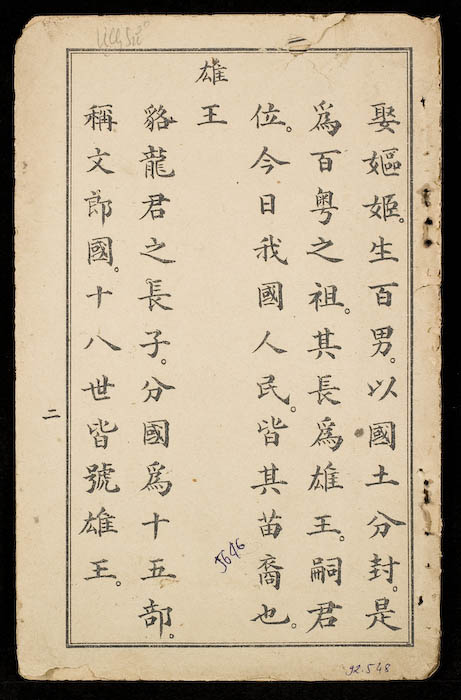 二
娶嫗姬。生百男。以國土分封。是
為百粵之祖。其長為雄王。嗣君
位。今日我國人民。皆其苗裔也。
雄王
貉龍君之長子。分國為十五部。
稱文郎國。十八世皆號雄王。
二
J646
92.548